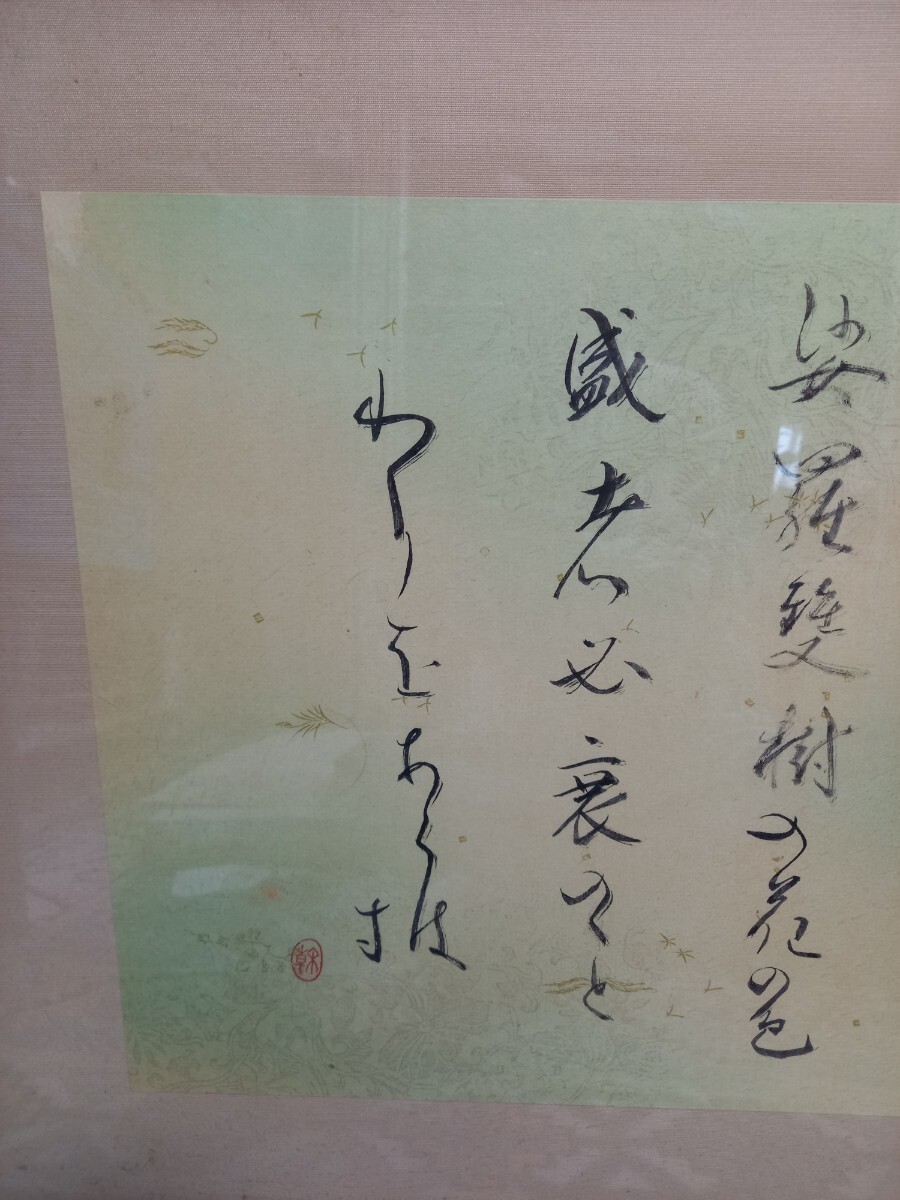 娑羅雙樹の花の色
盛者必衰のこと
わりをあらは
す